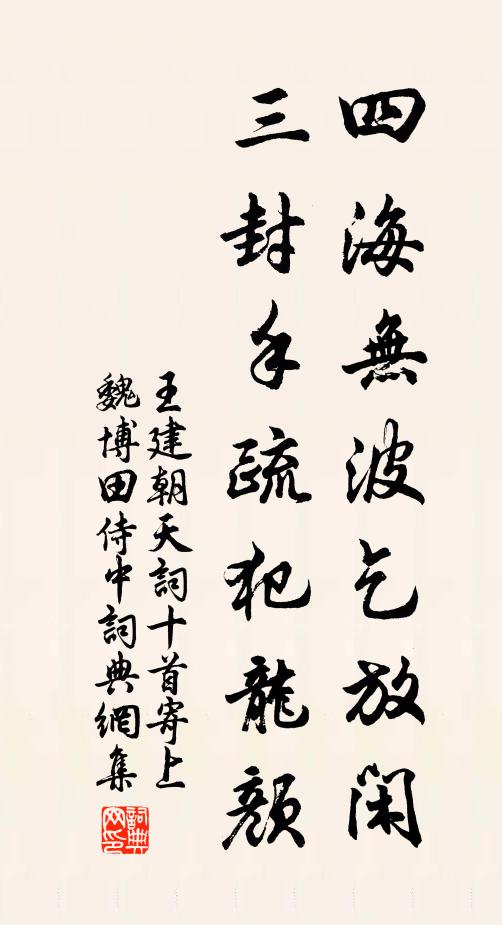 四海無波乞放閑
三封手疏犯龍顏
王建朝天詞十首寄上
魏博田侍中詞典網集
詞典網印